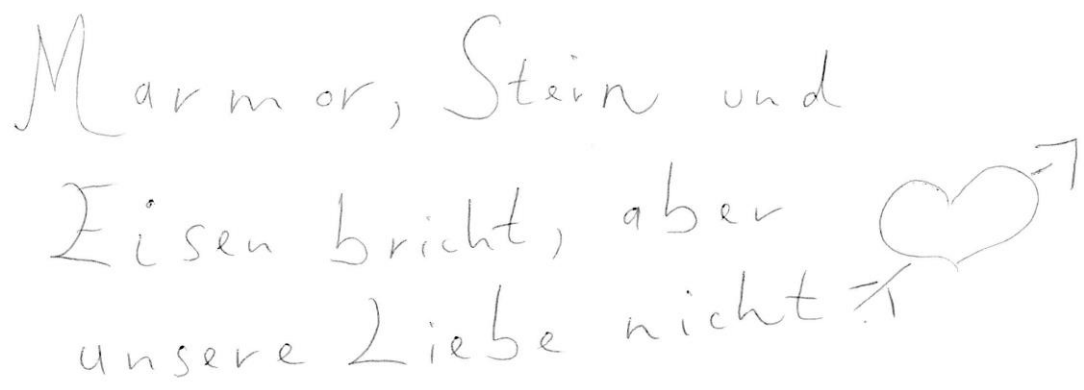 Marmor, Stein und
Eisen bricht, aber
unsere Liebe nicht